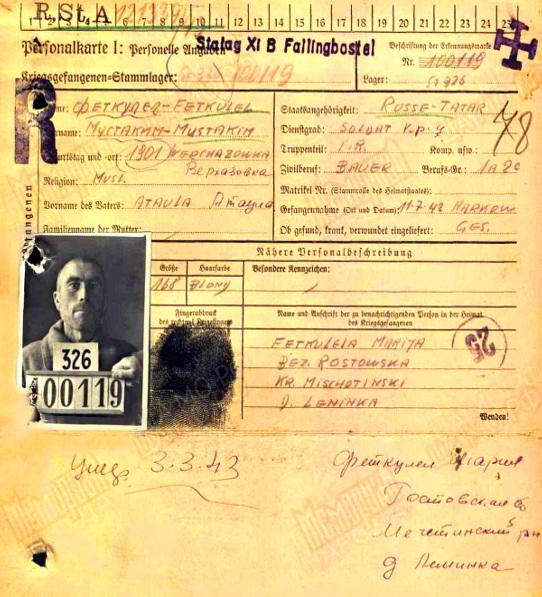 R. St. A
1 2 3 4 5 6 7 8 9 10 11 12 13 14 15 16 17 18 19 20 21 22 23 24 25
Personalkarte I: Personelle Angaben
Stalag XI B Fallingbostel
Beschriftung der Erkennungsmarke
Kriegsgefangenen-Stammlager:
100119
Nr. 100119
Lager: St 326
R
Name: ФЕТКУЛЕЛ-FETKULEL
Vorname: МУСТАКИМ-MUSTAKIM
Geburtstag und -ort: 1901 WERCHAZOWKA
Верхазовка
Religion: MUSL.
Vorname des Vaters: ATAULA Атаула
Familienname der Mutter:
Staatsangehörigkeit: RUSSE-TATAR
78
Dienstgrad: SOLDAT
Truppenteil: I.R. Komp. usw.:
Zivilberuf: BAUER Berufs-Gr.: 1A 20
Matrikel Nr. (Stammrolle des Heimatstaates):
Gefangennahme (Ort und Datum): 11.7.42 HARKOW
Ob gesund, krank, verwundet eingeliefert: GES.
Nähere Personalbeschreibung
Größe Haarfarbe Besondere Kennzeichen:
168 BLOND
Fingerabdruck
des rechten Zeigefingers
Name und Anschrift der zu benachrichtigenden Person in der Heimat
des Kriegsgefangenen
FETKULELA MARIJA
BEZ. ROSTOWSKA
KR. MISCHOTINSKI
D. LENINKA
25
Wenden!
326
00119
3.3.43
Феткулел Мария
Ростовская об
Мечетинский рн
д Ленинка